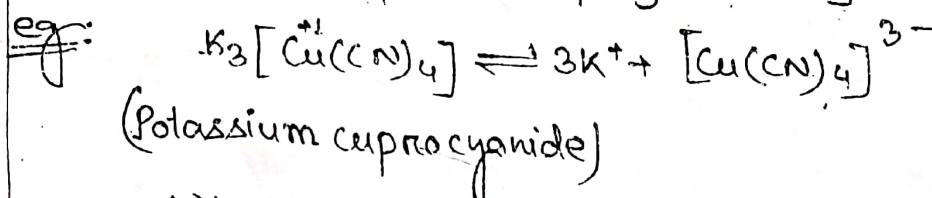 eg:
K₃[Cu⁺¹(CN)₄] ⇌ 3K⁺ + [Cu(CN)₄]³⁻
(Potassium cuprocyanide)